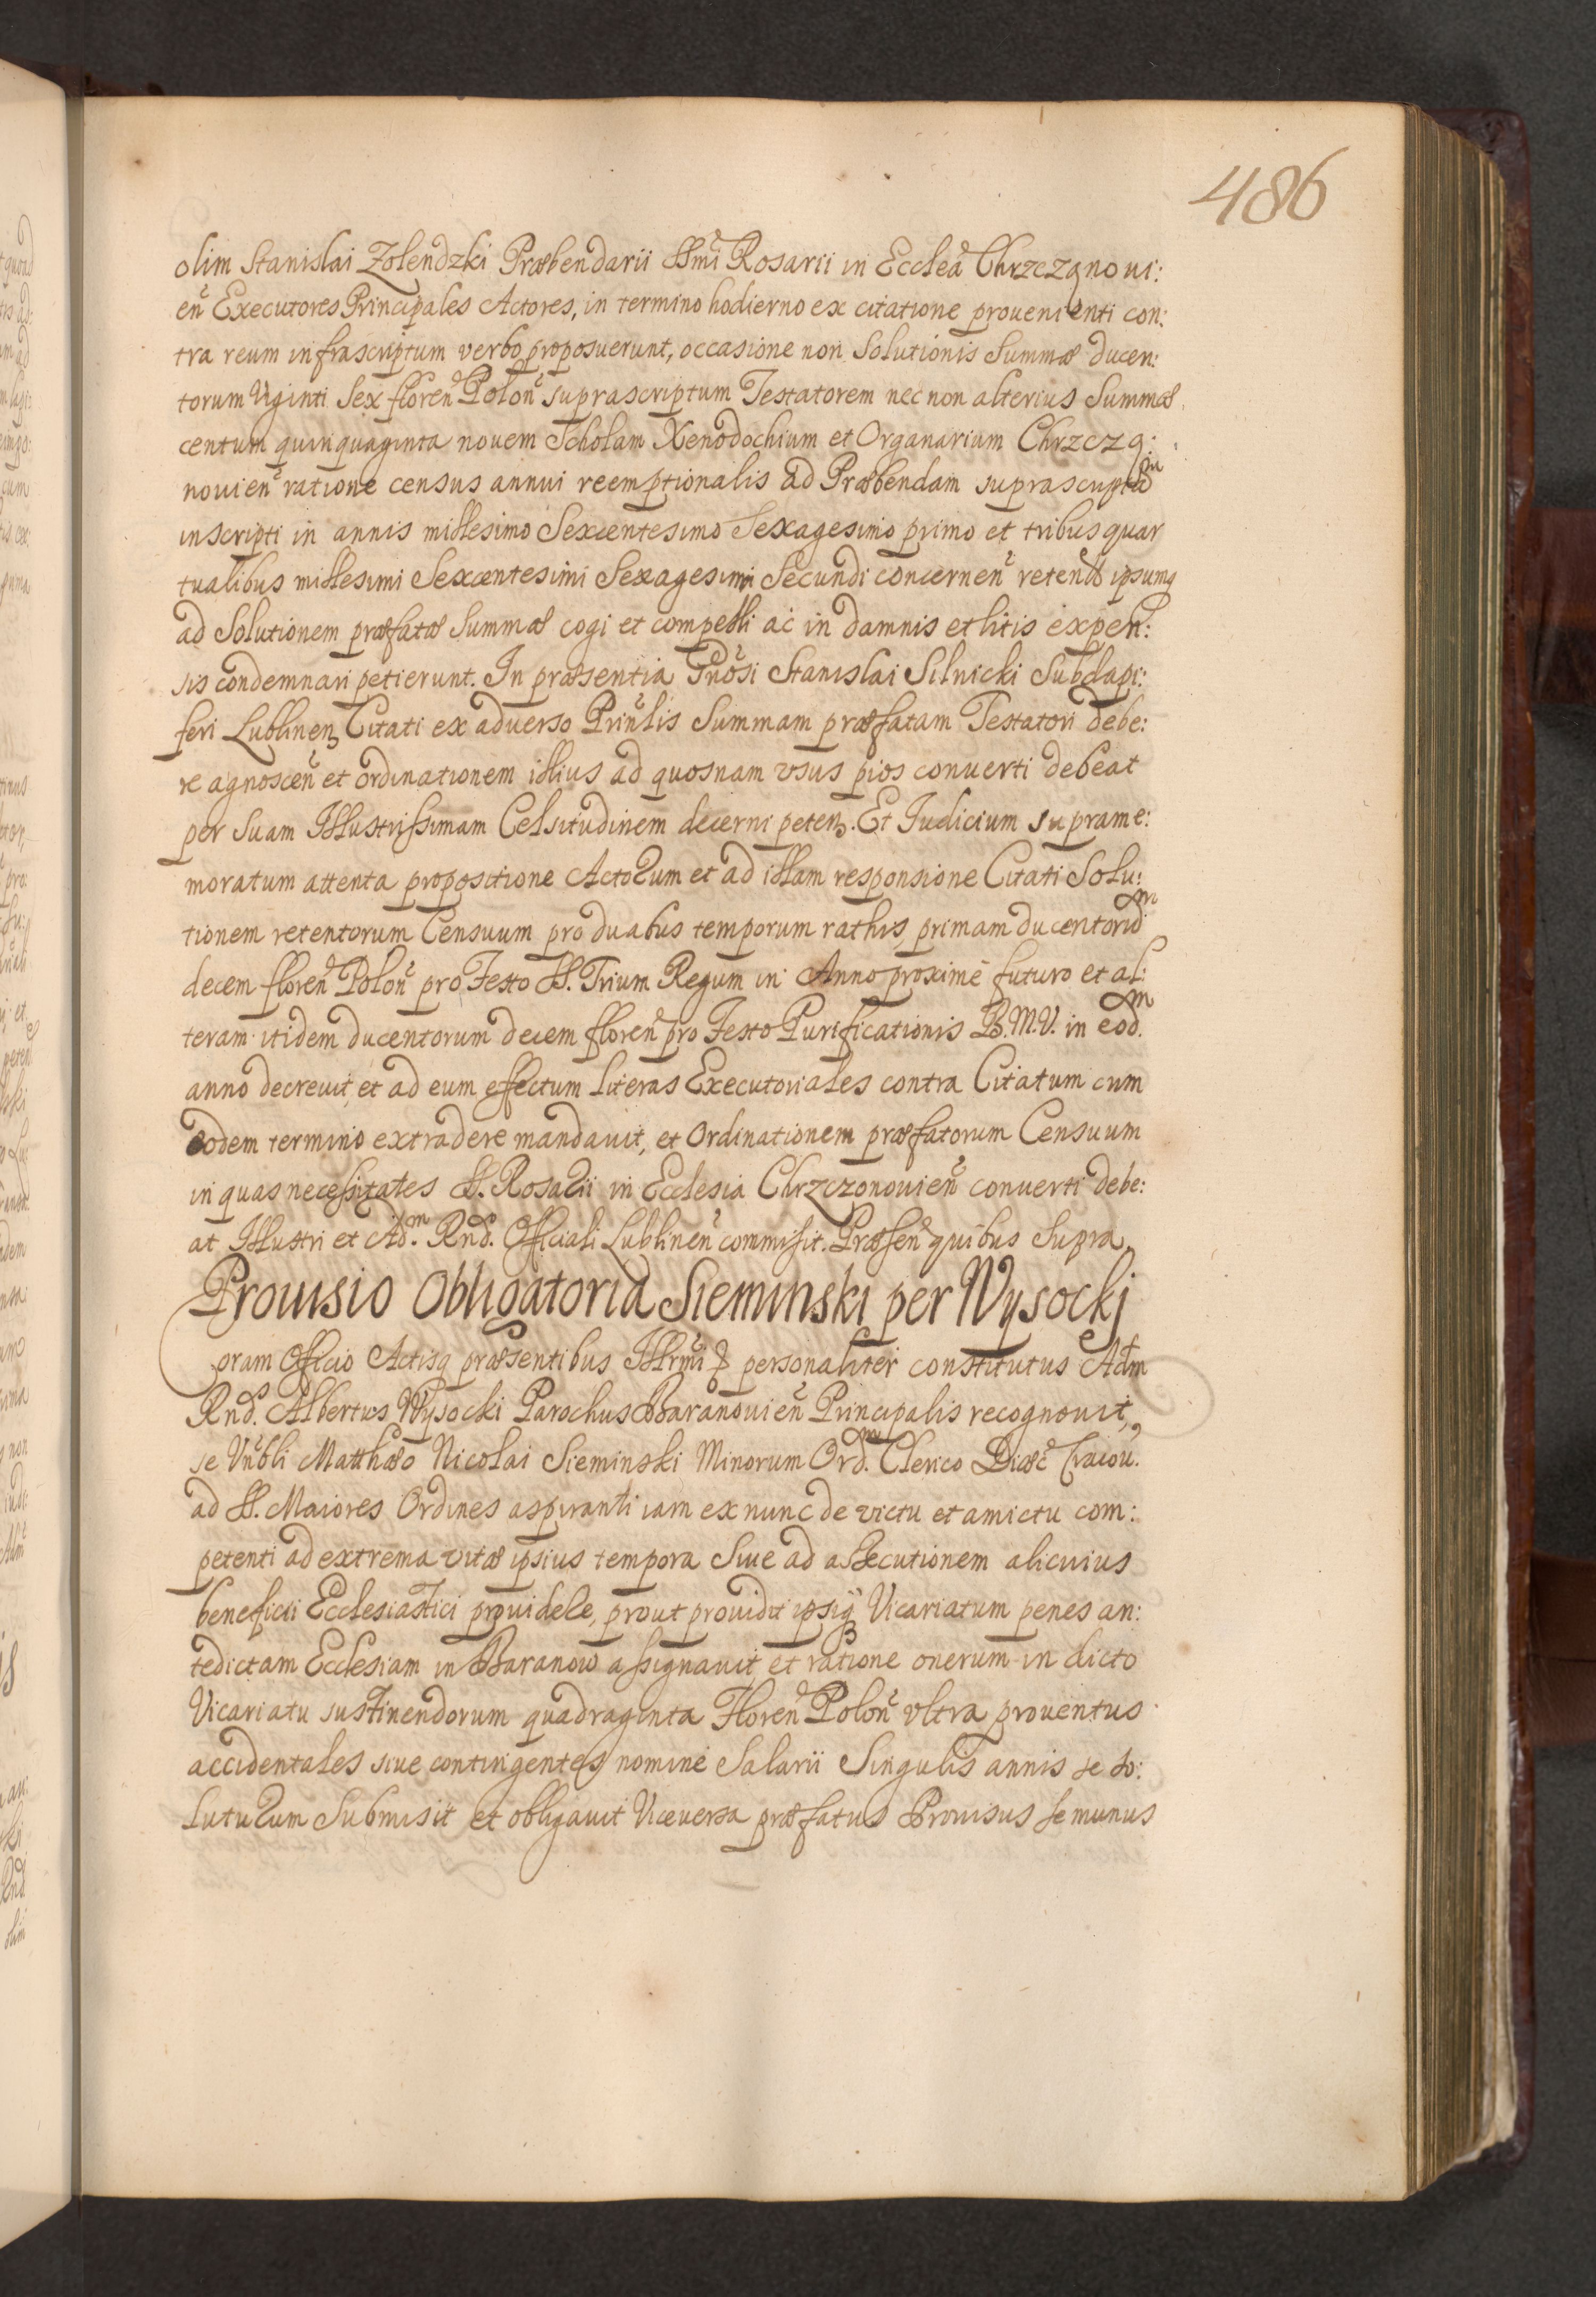 486
olim Stanislai Zolendzki Præbendarii SSmi Rosarii in Ecclea Chrzczonoui:
en Executores Principales Actores, in termino hodierno ex citatione prouenienti con:
tra reum infrascriptum verbo proposuerunt, occasione non Solutionis Summæ ducen:
torum Viginti Sex floren Polon suprascriptum Testatorem nec non alterius Summæ
centum quinquaginta nouem Scholam Xenodochium et Organarium Chrzczo:
nouien ratione census annui reemptionalis ad Præbendam suprascriptam
inscripti in annis millesimo Sexcentesimo Sexagesimo primo et tribus quar
tualibus millesimi Sexcentesimi Sexagesimi Secundi concernen retentæ ipsumq
ad Solutionem præfatæ Summæ cogi et compelli ac in damnis et litis expen:
sis condemnari petierunt. In præsentia Gnosi Stanislai Silnicki Subdapi:
feri Lublinen Citati ex aduerso Prinlis Summam præfatam Testatori debe:
re agnoscen et ordinationem illius ad quosnam vsus pios conuerti debeat
per Suam Illustrissimam Celsitudinem decerni peten. Et Iudicium suprame:
moratum attenta propositione Actorum et ad illam responsione Citati Solu:
tionem retentorum Censuum pro duabus temporum rathis, primam ducentorum
decem floren Polon pro Festo SS. Trium Regum in Anno proximé futuro et al:
teram itidem ducentorum decem floren pro Festo Purificationis B.M.V. in eodm
anno decreuit, et ad eum effectum literas Executoriales contra Citatum cum
eodem termino extradere mandauit, et Ordinationem præfatorum Censuum
in quas necessitates SS. Rosarii in Ecclesia Chrzczonouien conuerti debe:
at Illustri et Adm. Rnd. Officiali Lublinen commisit. Præsen quibus Supra.
Prouisio Obligatoria Sieminski per Wysockj
Coram Officio Actisq præsentibus Illrmi &c personaliter constitutus Adm
Rnd. Albertus Wysocki Parochus Baranouien Principalis recognouit,
se Vnbli Matthæo Nicolai Sieminski Minorum Ordm. Clerico Diæc Cracou.
ad SS. Maiores Ordines aspiranti iam ex nunc de victu et amictu com:
petenti ad extrema vitæ ipsius tempora Siue ad assecutionem alicuius
beneficii Ecclesiastici prouidere, prout prouidit ipsiq Vicariatum penes an:
tedictam Ecclesiam in Baranow assignauit et ratione onerum in dicto
Vicariatu sustinendorum quadraginta Floren Polon vltra prouentus
accidentales siue contingentes nomine Salarii Singulis annis se so:
luturum Submisit et obligauit Viceuersa præfatus Prouisus se munus